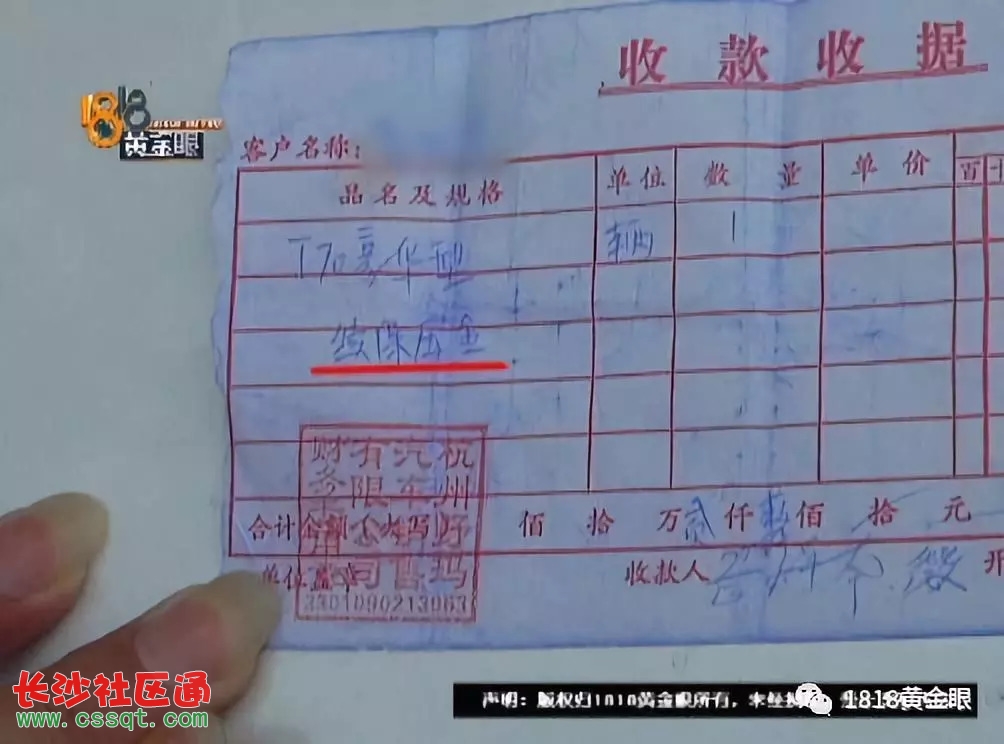 收款收据
1818
黄金眼
客户名称:
品名及规格 单位 数量 单价 百十
T70豪华型 辆 1
续保压金
杭州
汽车
有限
财务
3301090213063
合计金额大写 佰 拾 万 贰 仟 佰 拾 元
单位盖章 收款人 开
长沙社区通
www.cssqt.com
声明:版权归1818黄金眼所有,未经
1818黄金眼